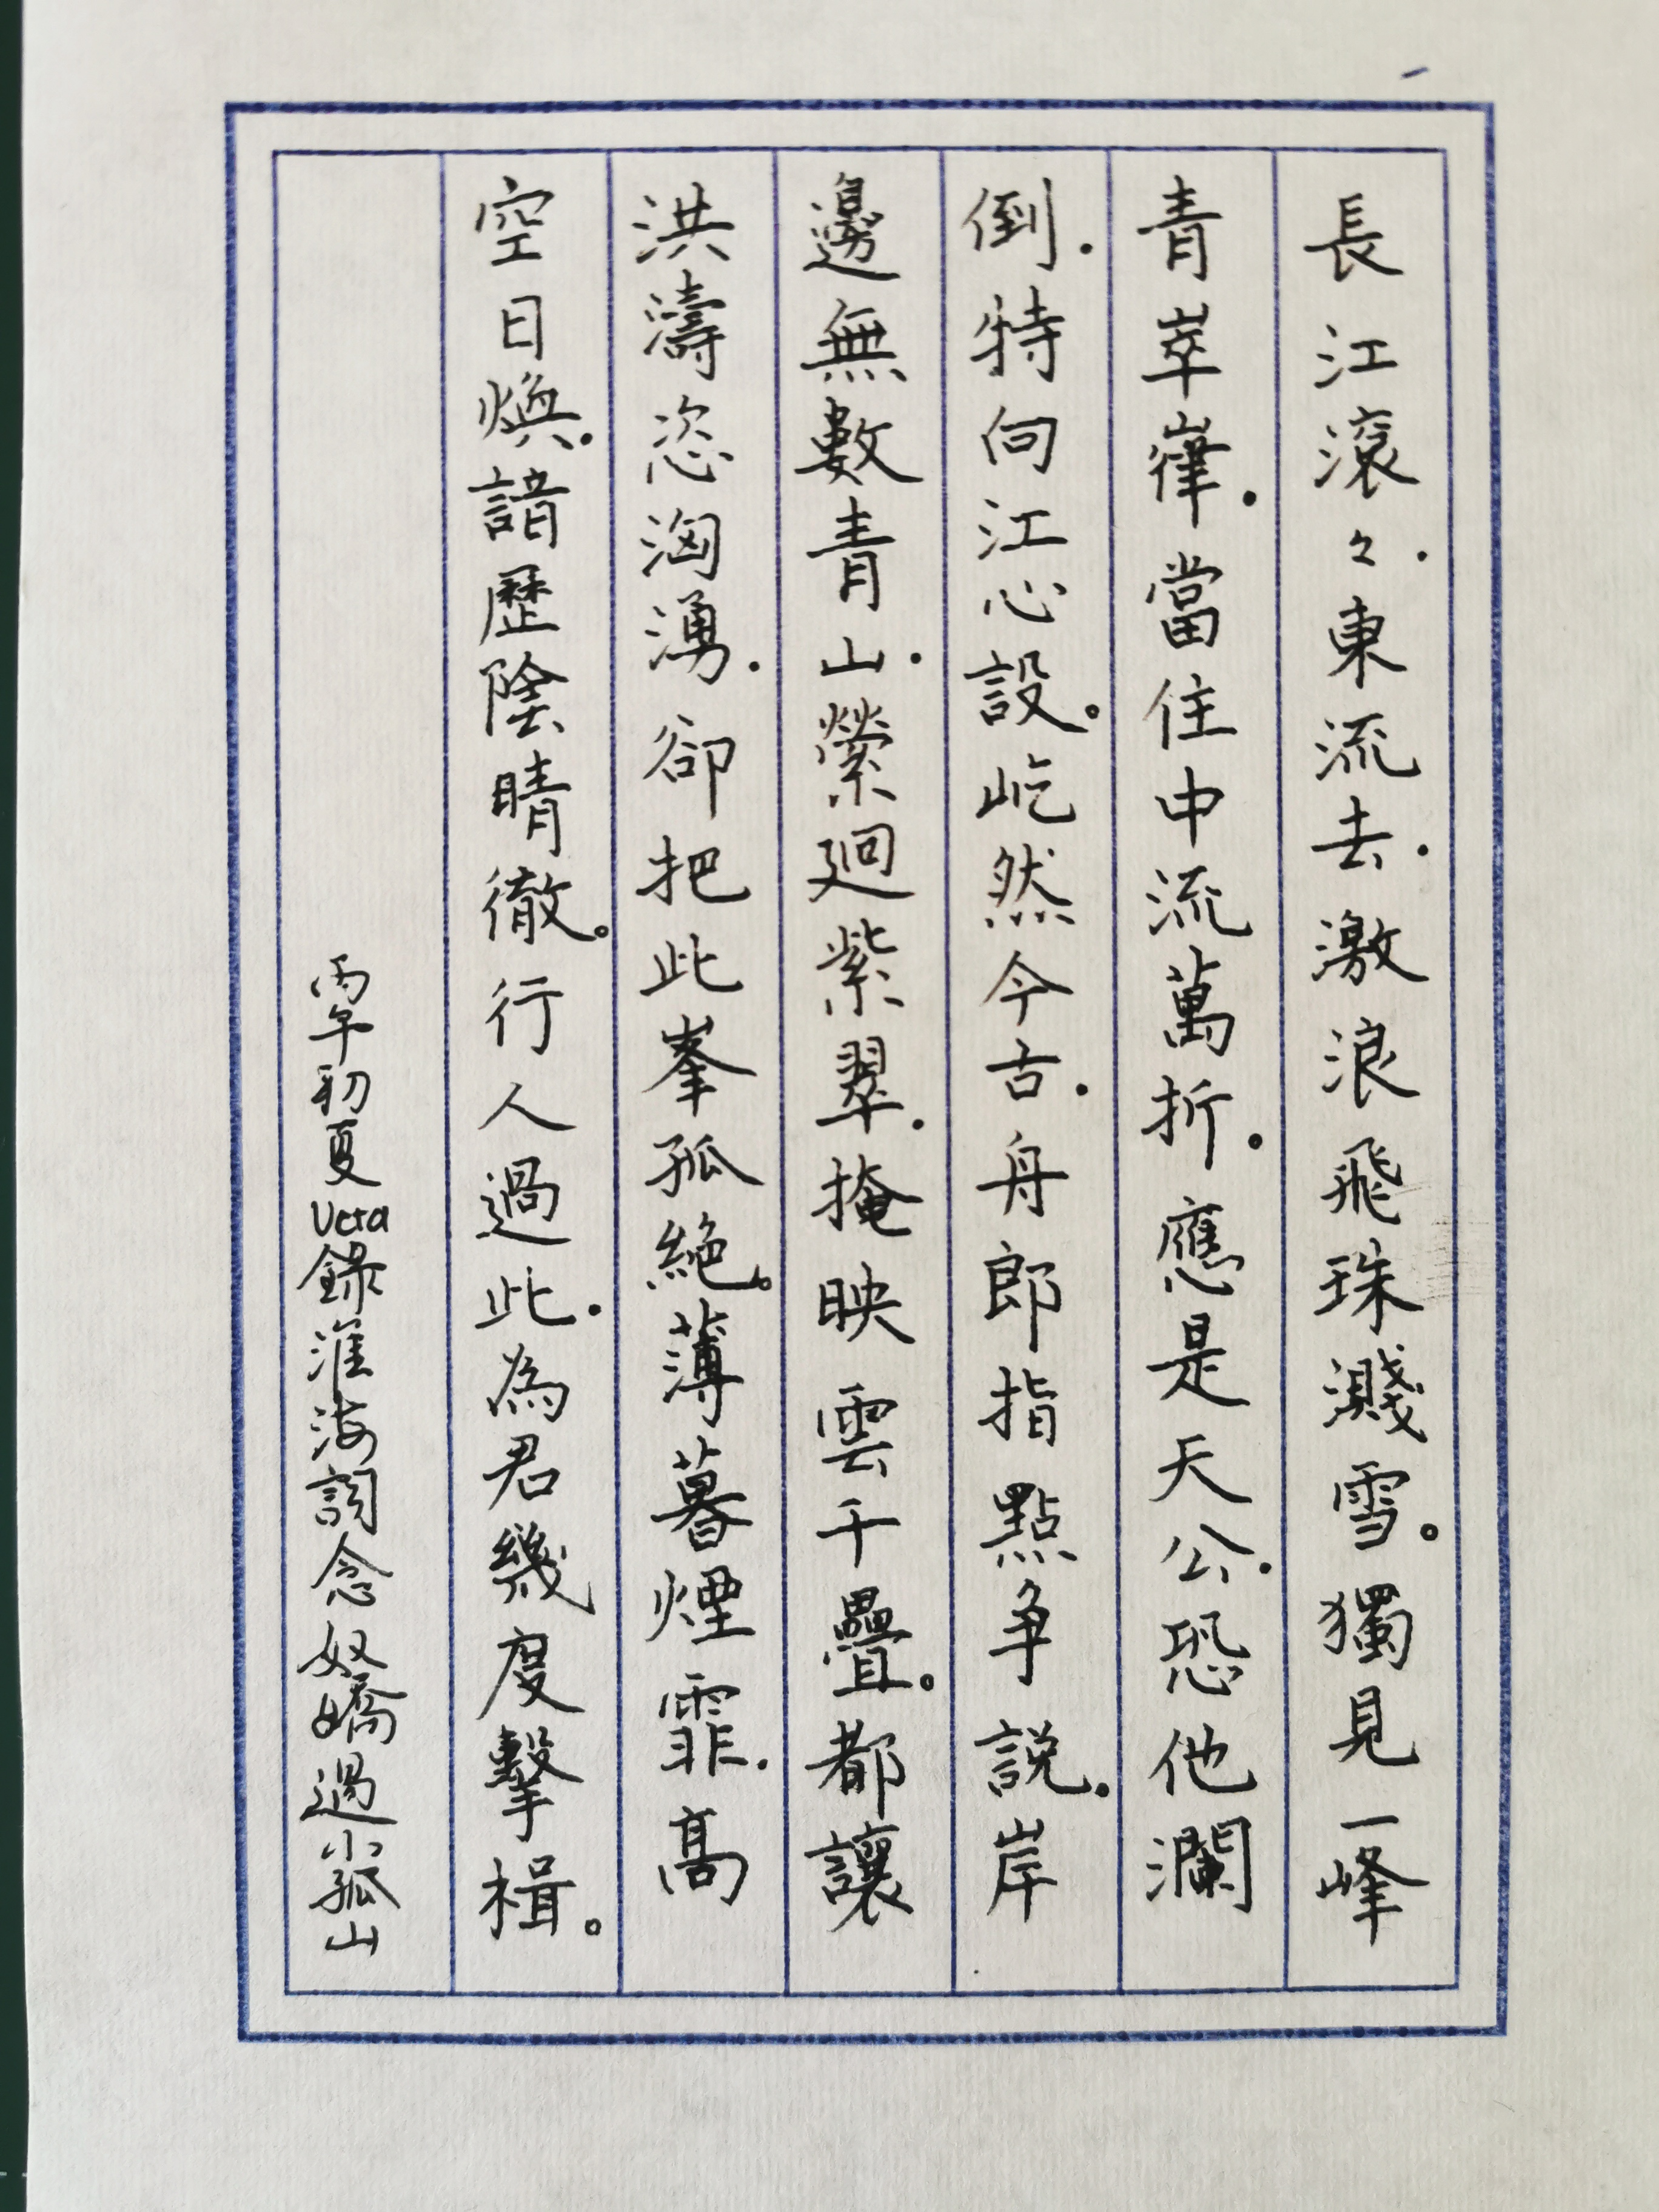 長江滾々．東流去．激浪飛珠濺雪。獨見一峰
青崒嵂．當住中流萬折．應是天公．恐他瀾
倒．特向江心設。屹然今古．舟郎指點争説。岸
邊無數青山．縈廻紫翠．掩映雲千疊。都讓
洪濤恣洶湧．卻把此峯孤絶。薄暮煙霏．高
空日煥．諳歷陰晴徹。行人過此．為君幾度擊楫。
丙午初夏Ucta錄淮海詞念奴嬌過小孤山